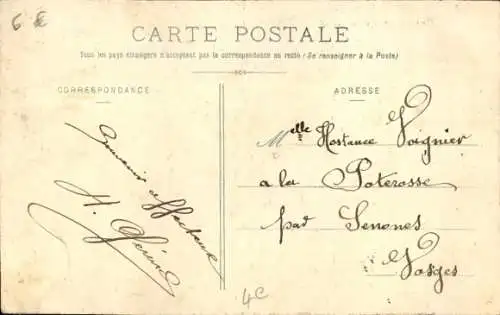 6 €
CARTE POSTALE
Tous les pays étrangers n'acceptent pas la correspondance au recto (Se renseigner à la Poste)
CORRESPONDANCE
ADRESSE
Souvenir affectueux
H.
Melle Hostance Voignier
a la Poterosse
par Senones
Vosges
4C